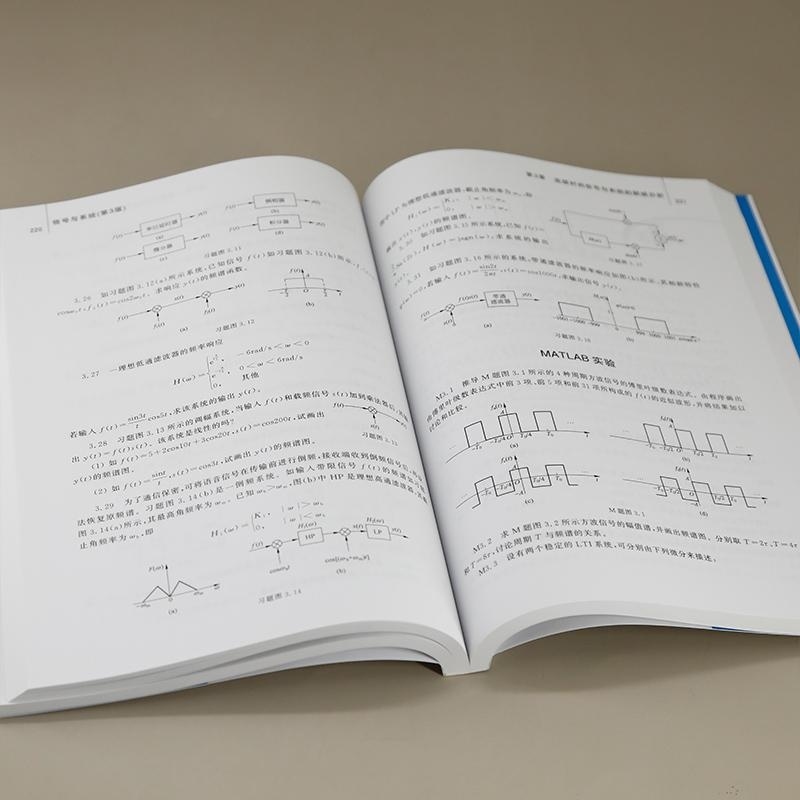 220 信号与系统(第3版)
f(t) 单位延时器 y(t)
(a)
f(t) 倒相器 y(t)
(b)
f(t) 微分器 y(t)
(c)
f(t) 积分器 y(t)
(d)
习题图 3.11
3.26 如习题图 3.12(a)所示系统,已知信号 f(t)如习题图 3.12(b)所示,
求响应 y(t)的频谱函数。
f(t) x(t) y(t)
(a)
(b)
习题图 3.12
3.27 一理想低通滤波器的频率响应
-6rad/s<ω<0
H(ω)= 0<ω<6rad/s
0, 其他
若输入 f(t)=sin3t/t cos5t,求该系统的输出 y(t)。
3.28 习题图 3.13 所示的调幅系统,当输入 f(t)和载频信号 s(t)加到乘法器后,其输
出 y(t)=f(t)s(t)。该系统是线性的吗?
(1) 如 f(t)=5+2cos10t+3cos20t,s(t)=cos200t,试画出
y(t)的频谱图。
习题图 3.13
(2) 如 f(t)=sint/t,s(t)=cos3t,试画出 y(t)的频谱图。
3.29 为了通信保密,可将语音信号在传输前进行倒频,接收端收到倒频信号后,
法恢复原频谱。习题图 3.14(b)是一倒频系统。如输入带限信号 f(t)的频谱如习题
图 3.14(a)所示,其最高角频率为 ωm。已知 ωb>ωm,图(b)中 HP 是理想高通滤波器,其截
止角频率为 ωb,即
H1(ω)= K1, |ω|>ωb
0, |ω|<ωb
F(ω)
-ωm 0 ωm ω
(a)
f(t) HP LP y(t)
H1(ω) H2(ω)
cos(ωbt) cos[(ωb+ωm)t]
(b)
习题图 3.14
第3章 连续时间信号与系统的频域分析 221
图中 LP 为理想低通滤波器,截止角频率为 ωm,即
H2(ω)= K2, |ω|<ωm
0, |ω|>ωm
画出 x(t)、y(t)的频谱图。
3.30 如习题图 3.15 所示系统,已知 f(t)=
H(ω)=jsgn(ω),求系统的输出
3.31 如习题图 3.16 所示的系统,带通滤波器的频率响应如图(b)所示,其相频特性
φ(ω)=0,若输入 f(t)=sin2t/2πt,s(t)=cos1000t,求输出信号 y(t)。
f(t) f(t)s(t) 带通滤波器 y(t)
s(t)
(a)
-1001 -1000 -999 0 999 1000 1001
(b)
习题图 3.16
MATLAB 实验
M3.1 推导 M 题图 3.1 所示的 4 种周期方波信号的傅里叶级数表达式。由程序画出
由傅里叶级数表达式中前 3 项、前 5 项和前 31 项所构成的 f(t)的近似波形,并将结果加以
讨论和比较。
(a)
(b)
(c)
(d)
M 题图 3.1
M3.2 求 M 题图 3.2 所示方波信号的幅值谱,并画出频谱图。分别取 T=2τ、T=4τ
和 T=8τ,讨论周期 T 与频谱的关系。
M3.3 设有两个稳定的 LTI 系统,可分别由下列微分来描述: